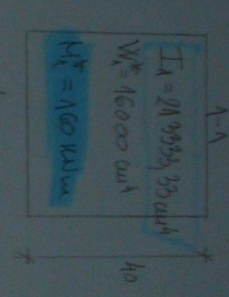 1-1
I₁ = 213333,33 cm⁴
W₁* = 16000 cm⁴
M₁* = 160 KNm
40